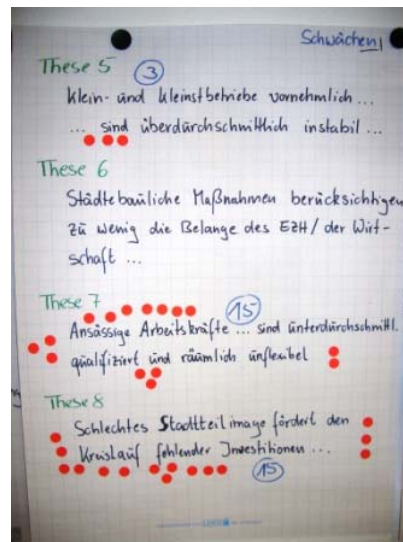 Schwächen
These 5 3
Klein- und Kleinstbetriebe vornehmlich ...
... sind überdurchschnittlich instabil ...
These 6
Städtebauliche Maßnahmen berücksichtigen
zu wenig die Belange des EZH / der Wirt-
schaft ...
These 7 15
Ansässige Arbeitskräfte ... sind unterdurchschnittl.
qualifiziert und räumlich unflexibel
These 8
Schlechtes Stadtteilimage fördert den
Kreislauf fehlender Investitionen ...
15